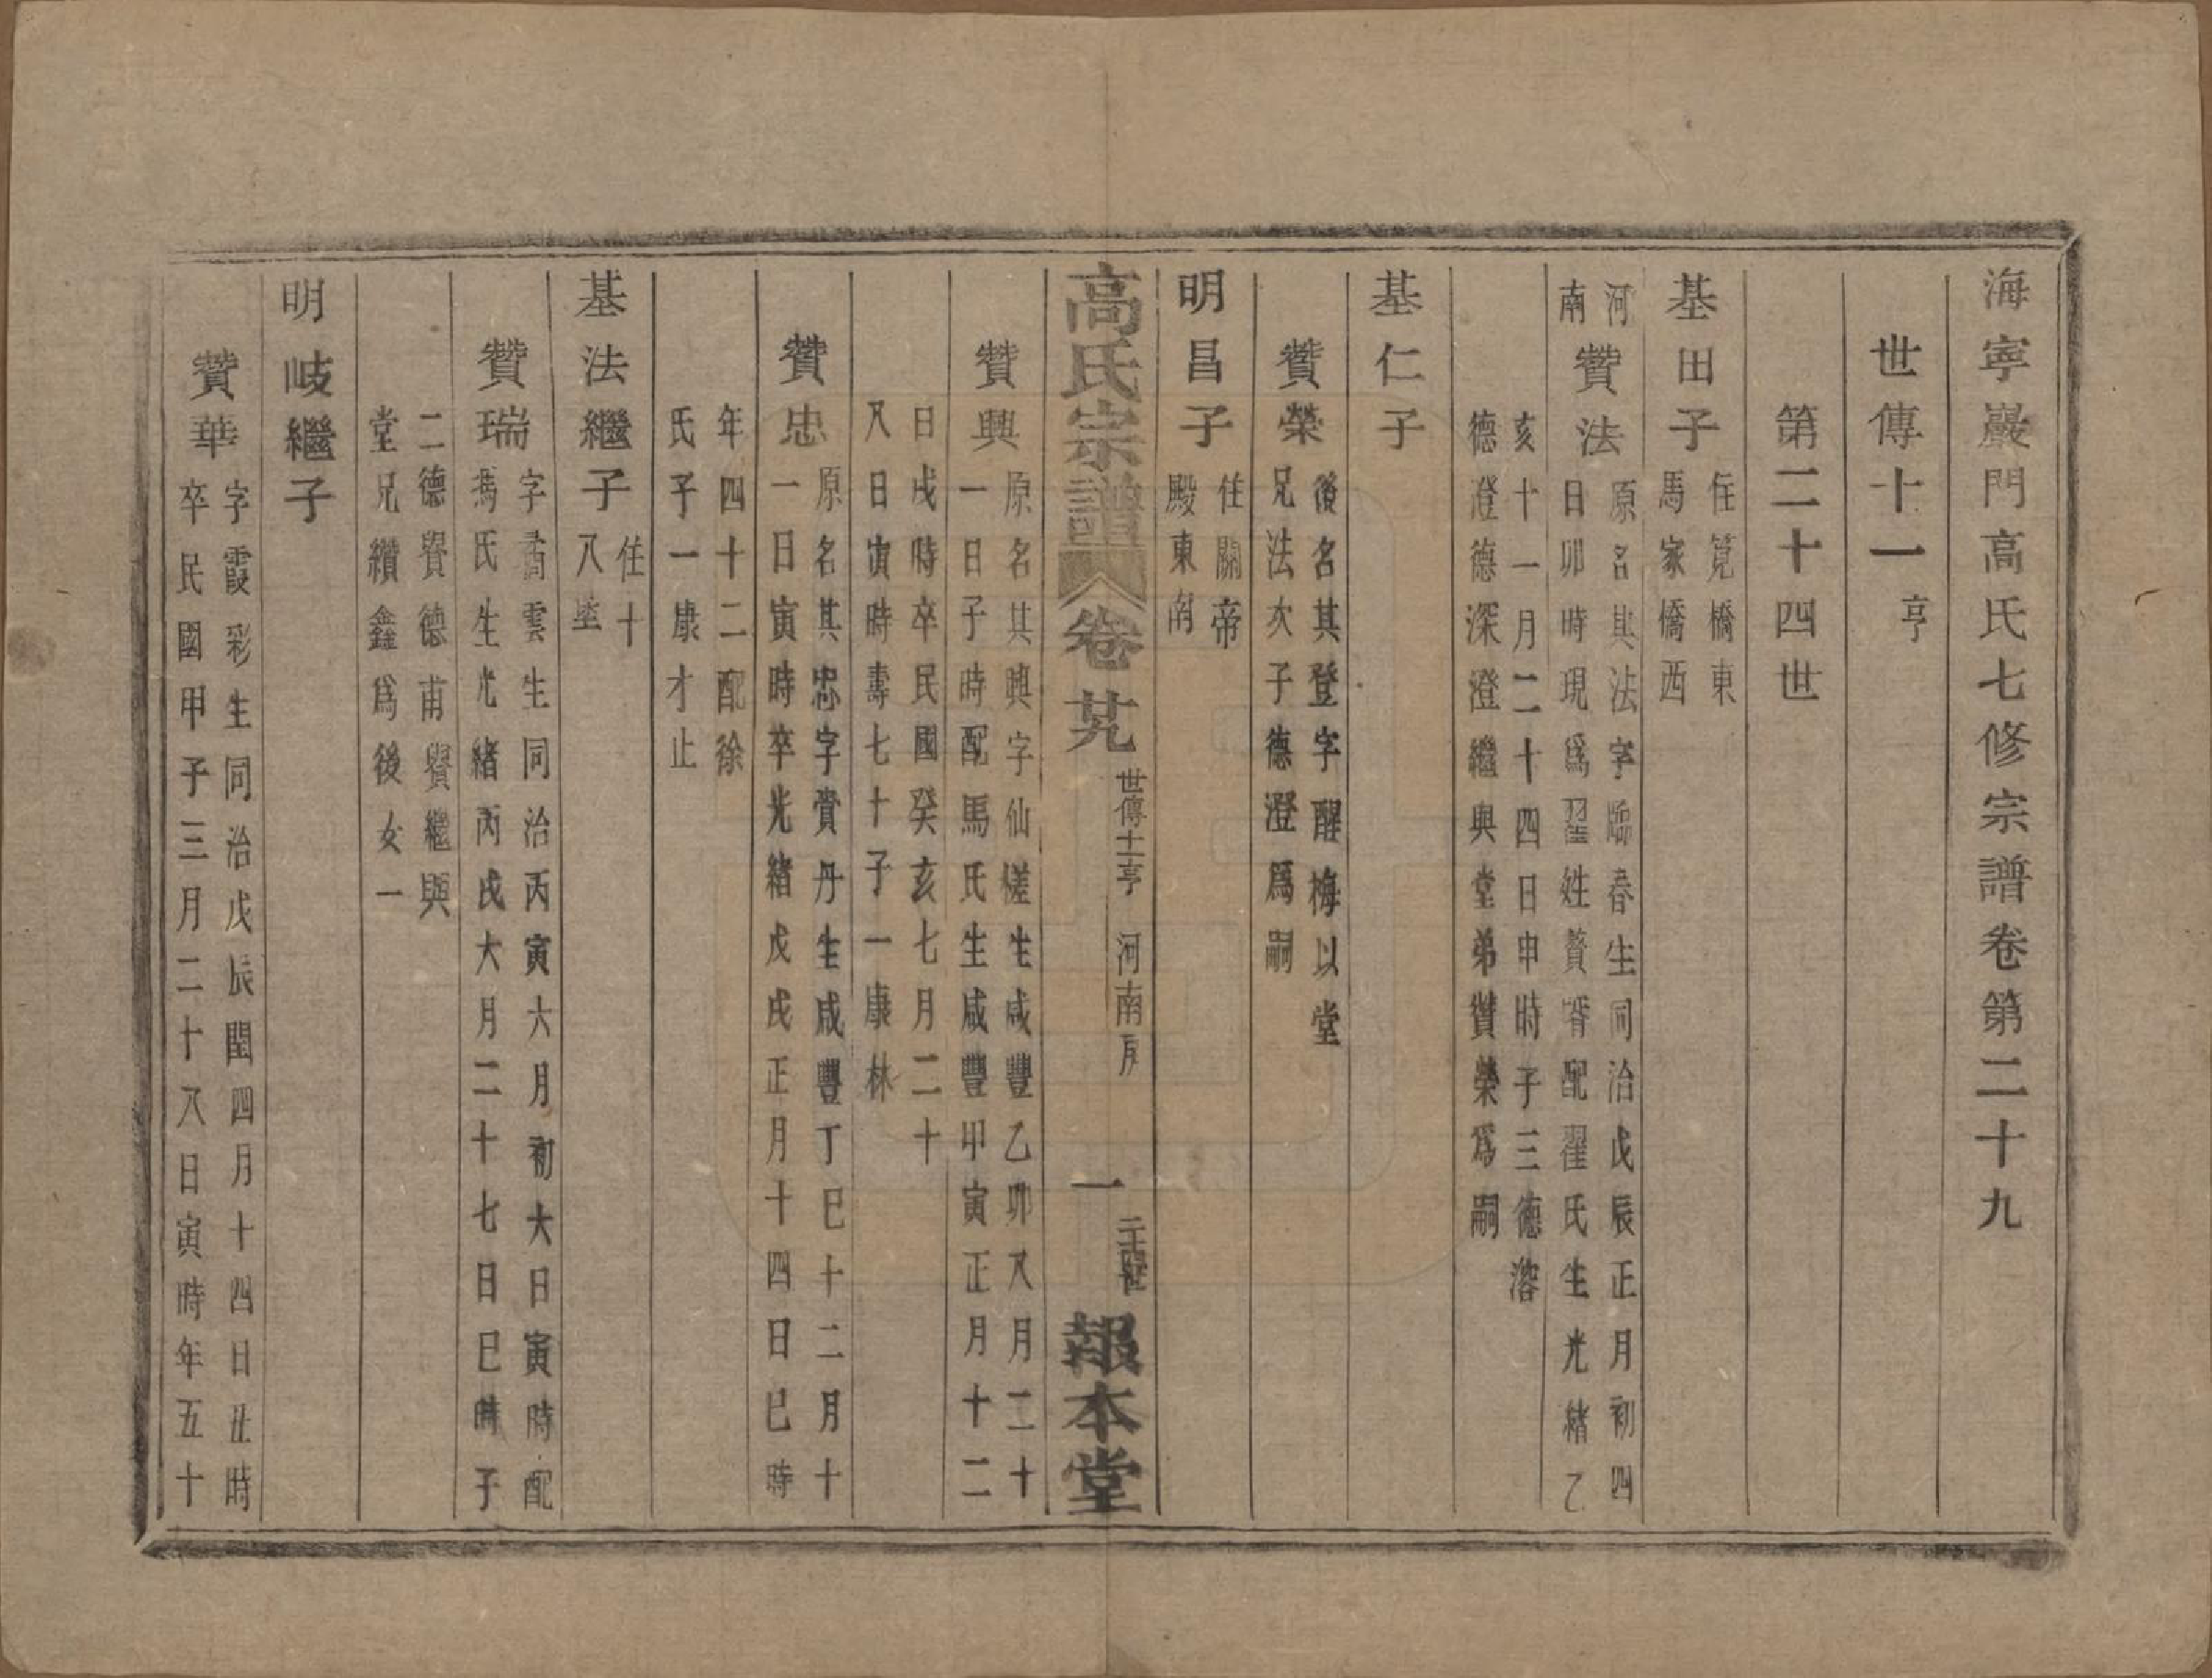 海寧巖門高氏七修宗譜卷第二十九
世傳十一 亨
第二十四世
基田子 住筧橋東
馬家橋西
河南 贊法 原名其法字臨春生同治戊辰正月初四
日卯時現爲翟姓贅壻配翟氏生光緒乙
亥十一月二十四日申時子三德溶
德澄德深澄繼與堂弟贊榮爲嗣
基仁子
贊榮 後名其登字醒梅以堂
兄法次子德澄爲嗣
明昌子 住關帝
殿東南
高氏宗譜 卷廿九 世傳十一亨 河南房 一 二十四世 報本堂
贊興 原名其興字仙槎生咸豐乙卯又月二十
一日子時配馬氏生咸豐甲寅正月十二
日戌時卒民國癸亥七月二十
八日寅時壽七十子一康林
贊忠 原名其忠字賞丹生咸豐丁巳十二月十
一日寅時卒光緒戊戌正月十四日巳時
年四十二配徐
氏子一康才止
基法繼子 住十
八堡
贊瑞 字雲生同治丙寅六月初六日寅時配
馮氏生光緒丙戌六月二十七日巳時子
二德賚德甫賚繼與
堂兄纘鑫爲後女一
明岐繼子
贊華 字霞彩生同治戊辰閏四月十四日丑時
卒民國甲子三月二十八日寅時年五十